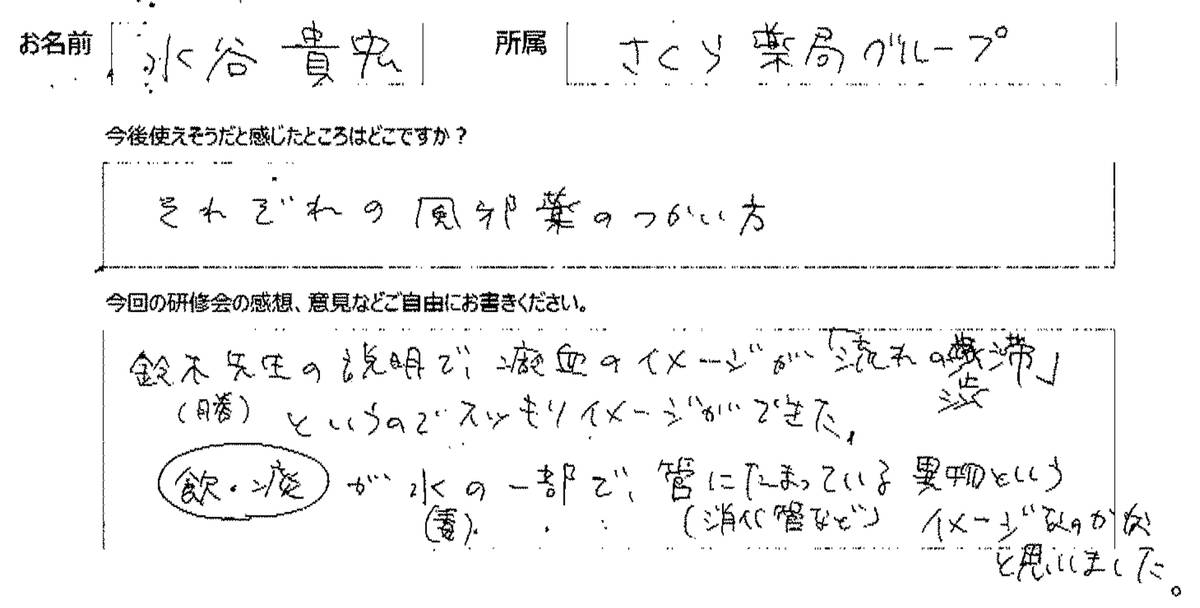 お名前 水谷 貴宏 所属 さくら薬局グループ
今後使えそうだと感じたところはどこですか？
それぞれの風邪薬のつかい方
今回の研修会の感想、意見などご自由にお書きください。
鈴木先生の説明で、瘀血のイメージが「流れの渋滞」
(勝) というのでスッキリイメージができた。
飲・痰 が 水の一部で、管にたまっている異物という
(毒) (消化管など) イメージなのかな
と思いました。